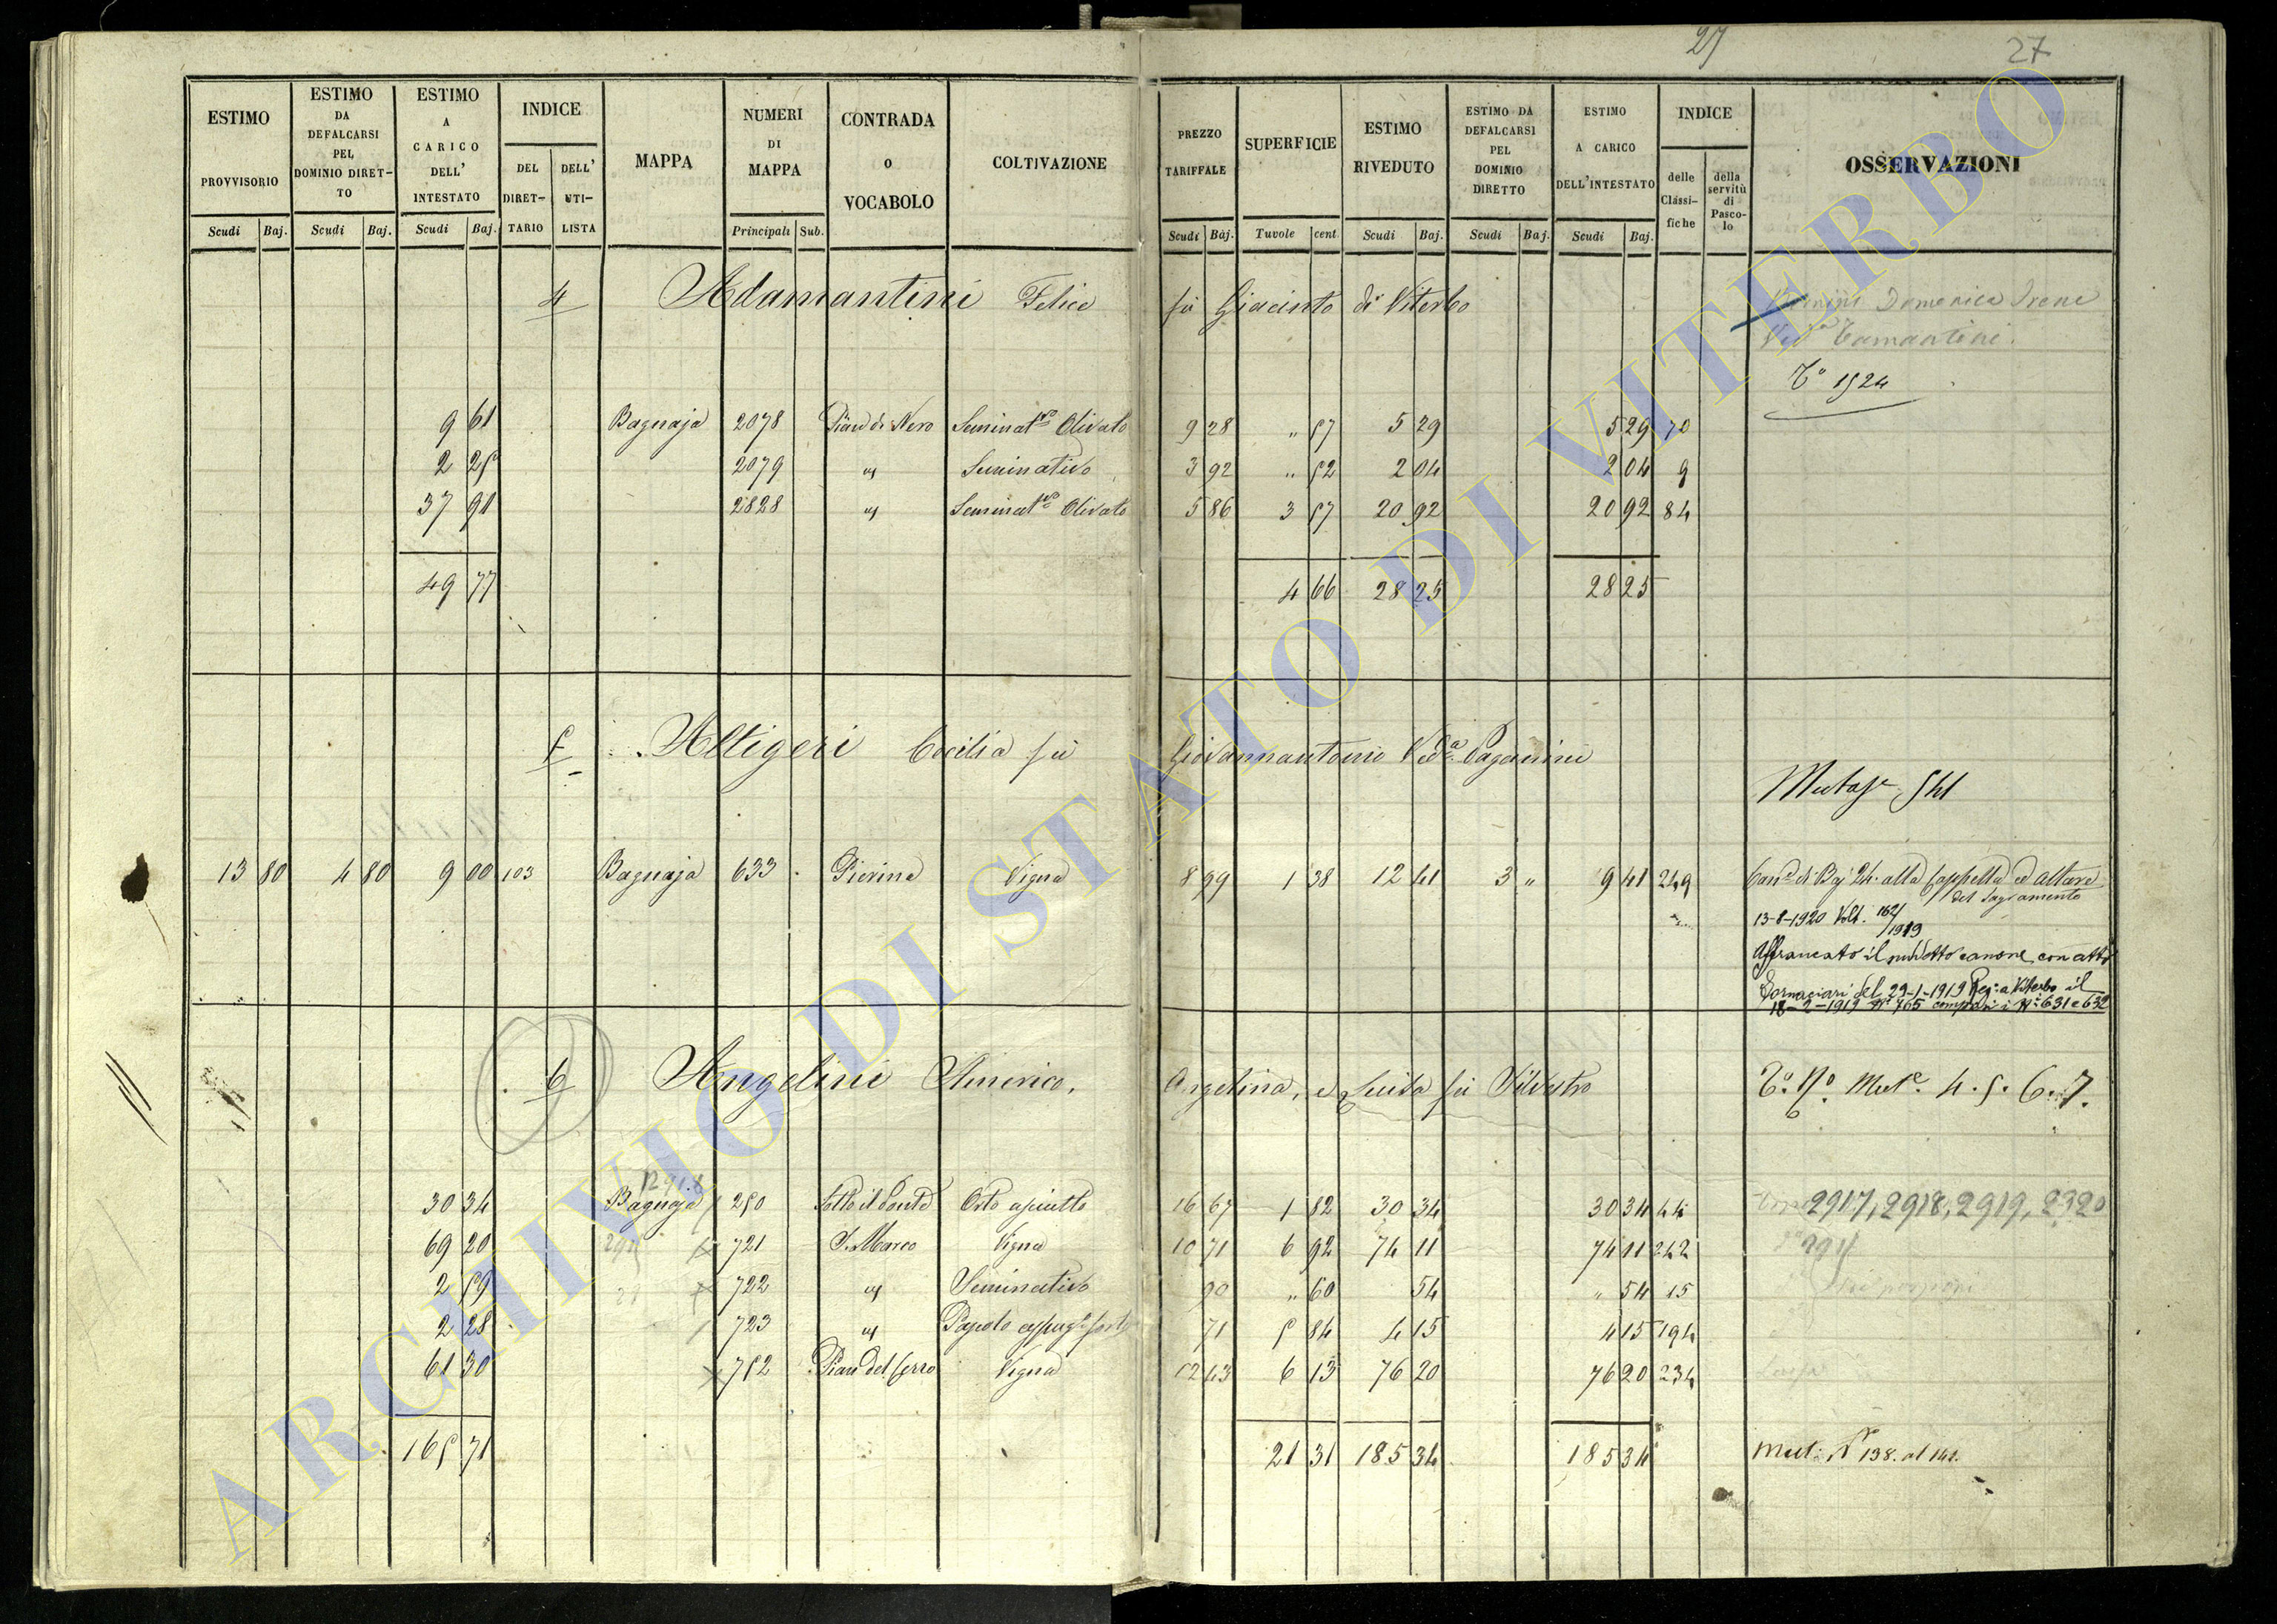 27 27
ESTIMO PROVVISORIO Scudi Baj.
ESTIMO DA DEFALCARSI PEL DOMINIO DIRETTO Scudi Baj.
ESTIMO A CARICO DELL' INTESTATO Scudi Baj.
INDICE DEL DIRETTARIO DELL' UTILISTA
MAPPA
NUMERI DI MAPPA Principali Sub.
CONTRADA o VOCABOLO
COLTIVAZIONE
PREZZO TARIFFALE Scudi Baj.
SUPERFICIE Tavole cent
ESTIMO RIVEDUTO Scudi Baj.
ESTIMO DA DEFALCARSI PEL DOMINIO DIRETTO Scudi Baj.
ESTIMO A CARICO DELL'INTESTATO Scudi Baj.
INDICE delle Classifiche della servitù di Pascolo
OSSERVAZIONI
4 Adamantini Felice fù Giacinto di Viterbo
Domenica Irene
Ved.a
T.o 1524
9 61 Bagnaja 2078 Pian di Nero Seminat.vo Olivato 9 28 " 57 5 29 5 29 70
2 25 2079 " Seminativo 3 92 " 52 2 04 2 04 9
37 91 2828 " Seminat.vo Olivato 5 86 3 57 20 92 20 92 84
49 77 4 66 28 25 28 25
5 Altigeri Cecilia fù Giovannantonio Ved.a Paganini
541
13 80 4 80 9 00 103 Bagnaja 633 Pierina Vigna 8 99 1 38 12 41 3 " 9 41 249 Can.e di Baj 24. alla Cappella ed altare
del Sagramento
13-8-1920 Volt. 162/1919
Affrancato il suddetto canone con atto
Fornaciari del 29-1-1919 Reg. a Viterbo il
18-2-1919 N° 765 i N.i 631 e 632
6 Angelini Americo, Angelina, e Luisa fù Silvestro T.o N.o Mut.e 4. 5. 6. 7.
30 34 Bagnaja 250 Sotto il Ponte Orto asciutto 16 67 1 82 30 34 30 34 44 2917, 2918, 2919, 2920
69 20 721 S. Marco Vigna 10 71 6 92 74 11 74 11 242
2 59 722 " Seminativo 90 " 60 54 " 54 15
2 28 723 " Pascolo 71 5 84 4 15 4 15 194
61 30 752 Pian del Cerro Vigna 12 43 6 13 76 20 76 20 234
165 71 21 31 185 34 185 34 Mut. N 138. al 141.
ARCHIVIO DI STATO DI VITERBO